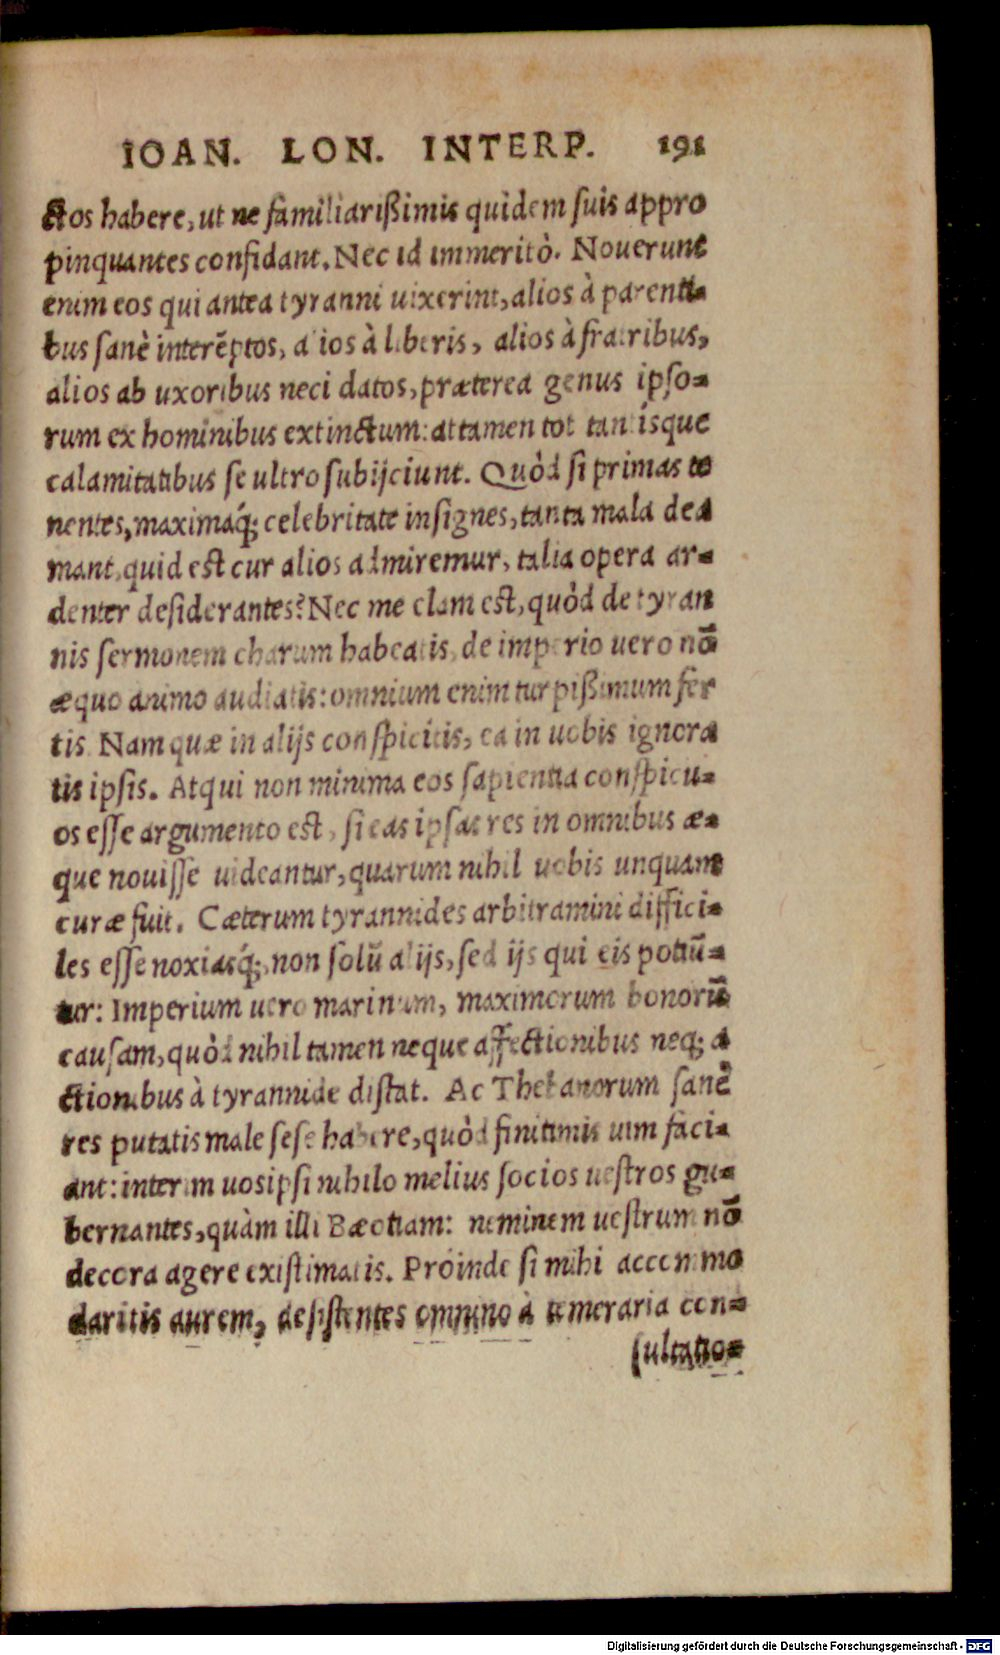 IOAN. LON. INTERP. 191
ctos habere, ut ne familiarißimis quidem suis appro
pinquantes confidant. Nec id immeritò. Nouerunt
enim eos qui antea tyranni uixerint, alios à parenti-
bus sanè interẽptos, alios à liberis, alios à fratribus,
alios ab uxoribus neci datos, præterea genus ipso-
rum ex hominibus extinctum: attamen tot tantisque
calamitatibus se ultro subijciunt. Quòd si primas te
nentes, maximaq́; celebritate insignes, tanta mala dea
mant, quid est cur alios admiremur, talia opera ar-
denter desiderantes? Nec me clam est, quòd de tyran
nis sermonem charum habeatis, de imperio uero nõ
æquo animo audiatis: omnium enim turpißimum fer
tis. Nam quæ in alijs conspicitis, ea in uobis ignora
tis ipsis. Atqui non minima eos sapientia conspicu-
os esse argumento est, si eas ipsas res in omnibus æ-
que nouisse uideantur, quarum nihil uobis unquam
curæ fuit. Cæterum tyrannides arbitramini diffici-
les esse noxiasq́;, non solũ alijs, sed ijs qui eis potiũ-
tur: Imperium uero marinum, maximorum bonorũ
causam, quòd nihil tamen neque affectionibus neq; a
ctionibus à tyrannide distat. Ac Thebanorum sanè
res putatis male sese habere, quòd finitimis uim faci-
ant: interim uosipsi nihilo melius socios uestros gu-
bernantes, quàm illi Bæotiam: neminem uestrum nõ
decora agere existimatis. Proinde si mihi accommo
daritis aurem, desistentes omnino à temeraria con-
sultatio-
Digitalisierung gefördert durch die Deutsche Forschungsgemeinschaft - DFG